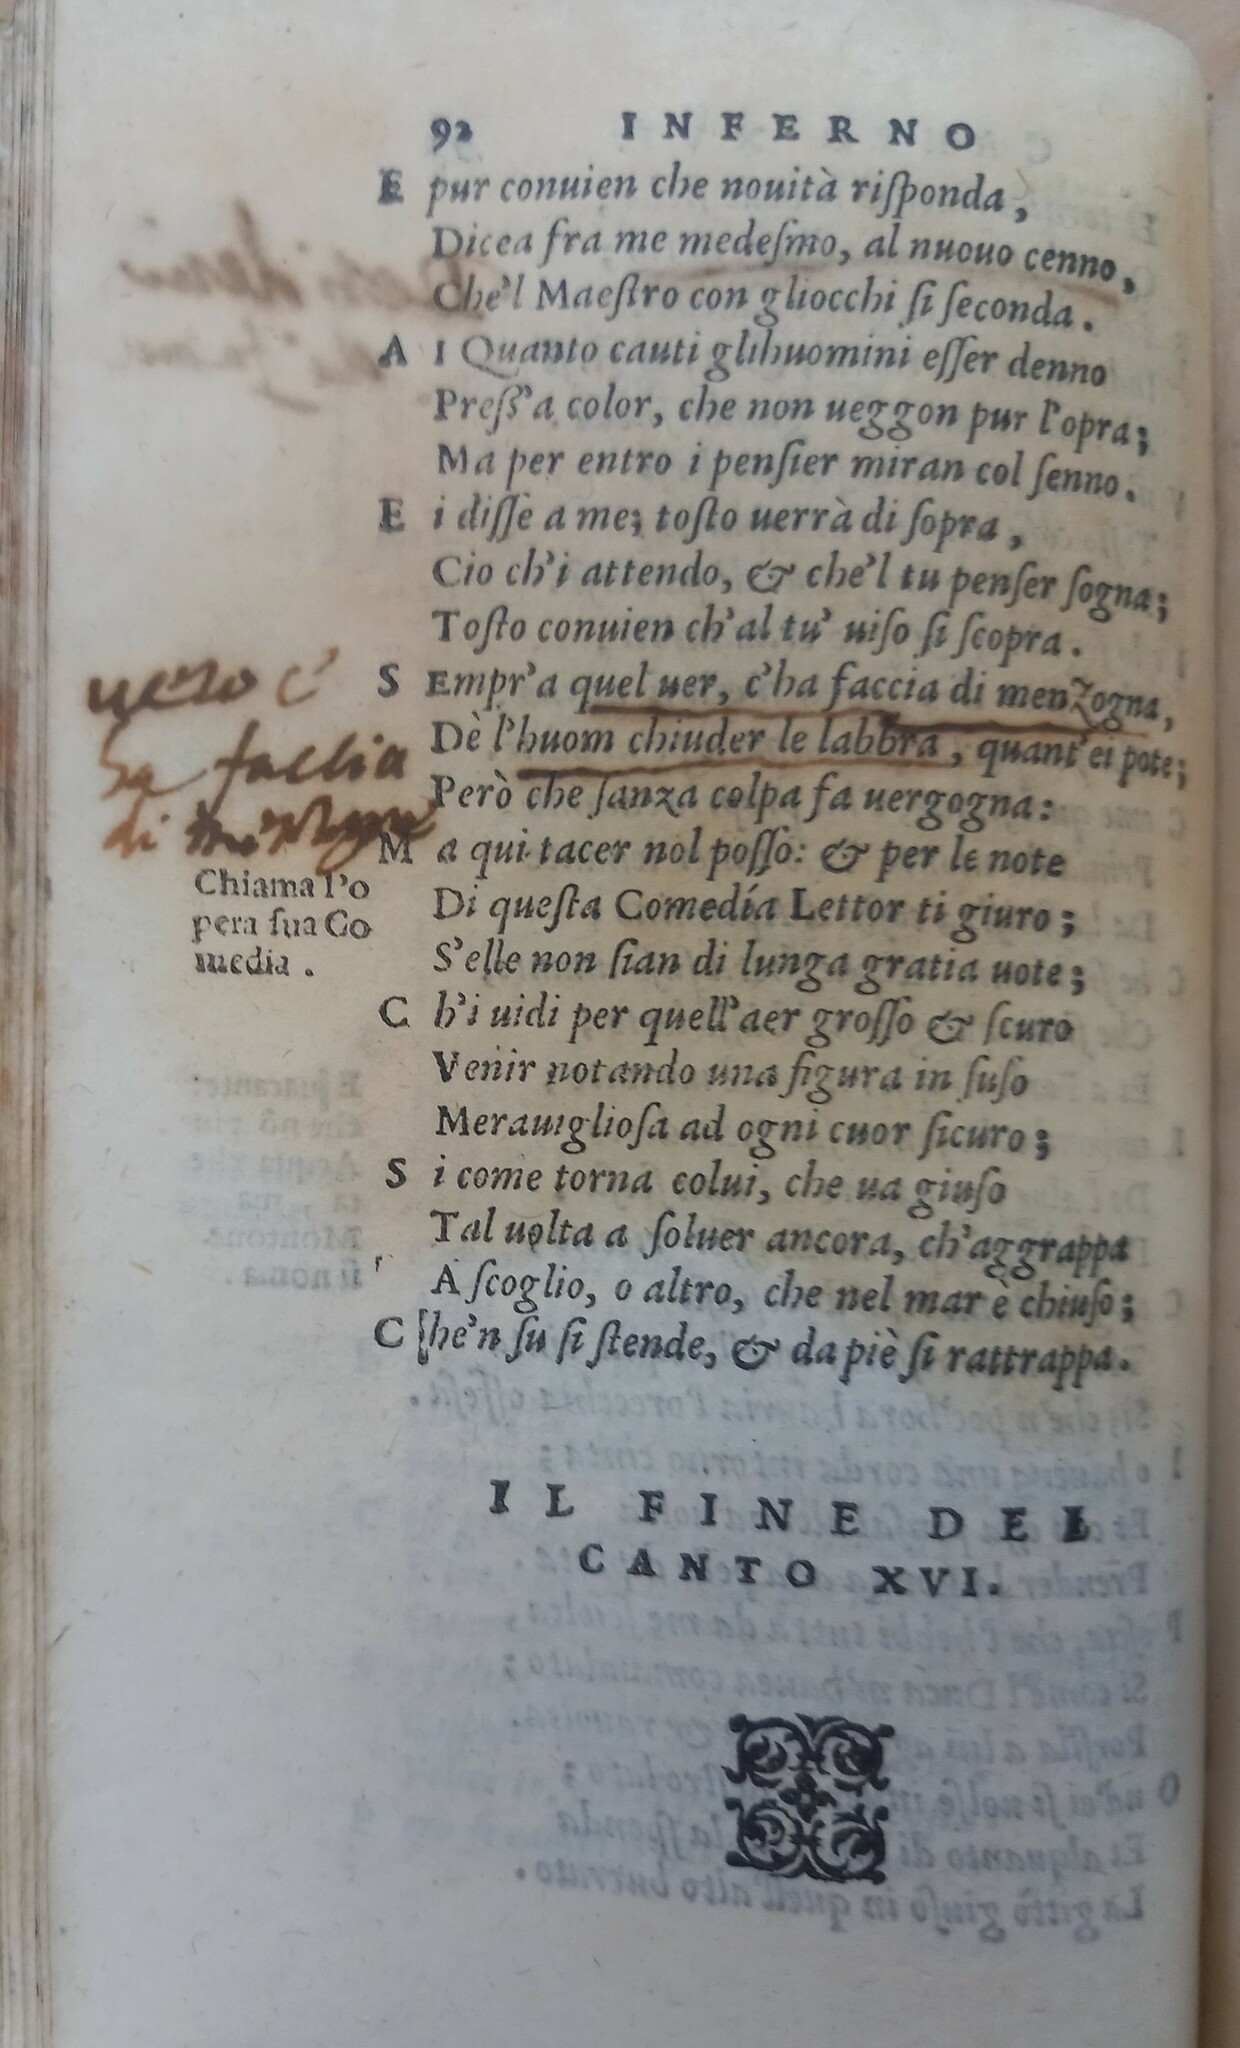 92 INFERNO
E pur conuien che nouità riſponda,
Dicea fra me medeſmo, al nuouo cenno,
Che'l Maeſtro con gliocchi ſi ſeconda.
A I Quanto cauti glihuomini eſſer denno
Preſſ'a color, che non ueggon pur l'opra;
Ma per entro i penſier miran col ſenno.
E i diſſe a me; toſto uerrà di ſopra,
Cio ch'i attendo, & che'l tu penſer ſogna;
Toſto conuien ch'al tu' uiſo ſi ſcopra.
S Empr'a quel uer, c'ha faccia di menZogna,
Dè l'huom chiuder le labbra, quant'ei pote;
Però che ſanza colpa fa uergogna:
M a qui tacer nol poſſo: & per le note
Di queſta Comedía Lettor ti giuro;
S'elle non ſian di lunga gratia uote;
C h'i uidi per quell'aer groſſo & ſcuro
Venir notando una figura in ſuſo
Merauiglioſa ad ogni cuor ſicuro;
S i come torna colui, che ua giuſo
Tal uolta a ſoluer ancora, ch'aggrappa
A ſcoglio, o altro, che nel mar è chiuſo;
C he'n ſu ſi ſtende, & da piè ſi rattrappa.
uero c'
ha faccia
di
Chiama l'o
pera ſua Co
media.
IL FINE DEL
CANTO XVI.